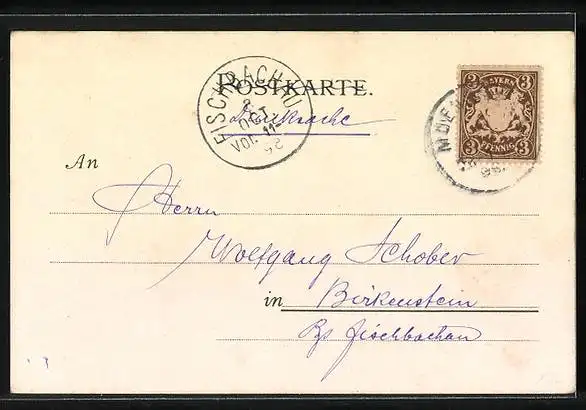 POSTKARTE.
Drucksache
FISCHBACHAU
2
OCT
VOR. 11-
98
BAYERN
3 3
PFENNIG
3 3
An
Herrn
Wolfgang Schober
in Birkenstein
Fischbachau